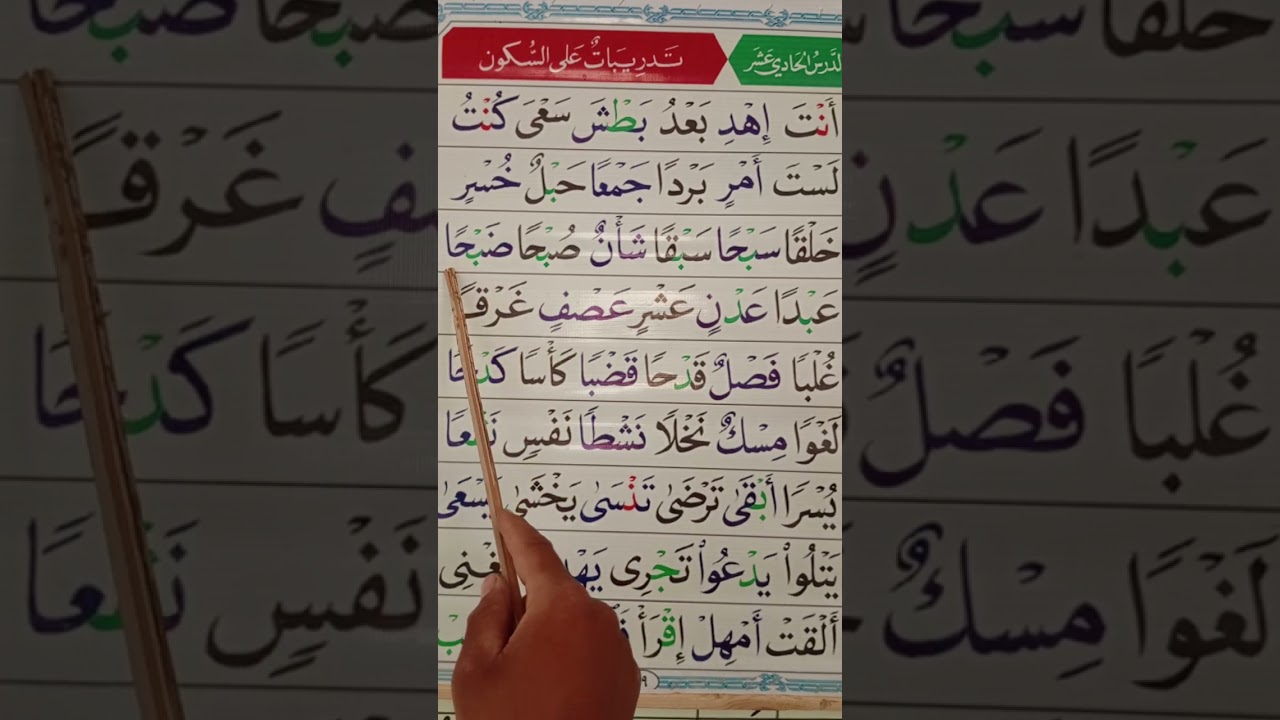 الدَّرْسُ الحَادِي عَشَر
تَدرِيبَاتٌ عَلى السُّكون
أَنْتَ إِهْدِ بَعْدُ بَطْشَ سَعْىَ كُنْتُ
لَسْتَ أَمْرٍ بَرْدًا جَمْعًا حَبْلٌ خُسْرٍ
خَلْقًا سَبْحًا سَبْقًا شَأْنٌ صُبْحًا ضَبْحًا
عَبْدًا عَدْنٍ عَشْرٍ عَصْفٍ غَرْقًا
غُلْبًا فَصْلٌ قَدْحًا قَضْبًا كَأْسًا كَدْحًا
لَغْوًا مِسْكٌ نَخْلًا نَشْطًا نَفْسٍ نَقْعًا
يُسْرًا أَبْقَىٰ تَرْضَىٰ تَنْسَىٰ يَخْشَىٰ يَسْعَىٰ
يَتْلُواْ يَدْعُواْ تَجْرِى
أَلْقَتْ أَمْهِلْ إِقْرَأْ